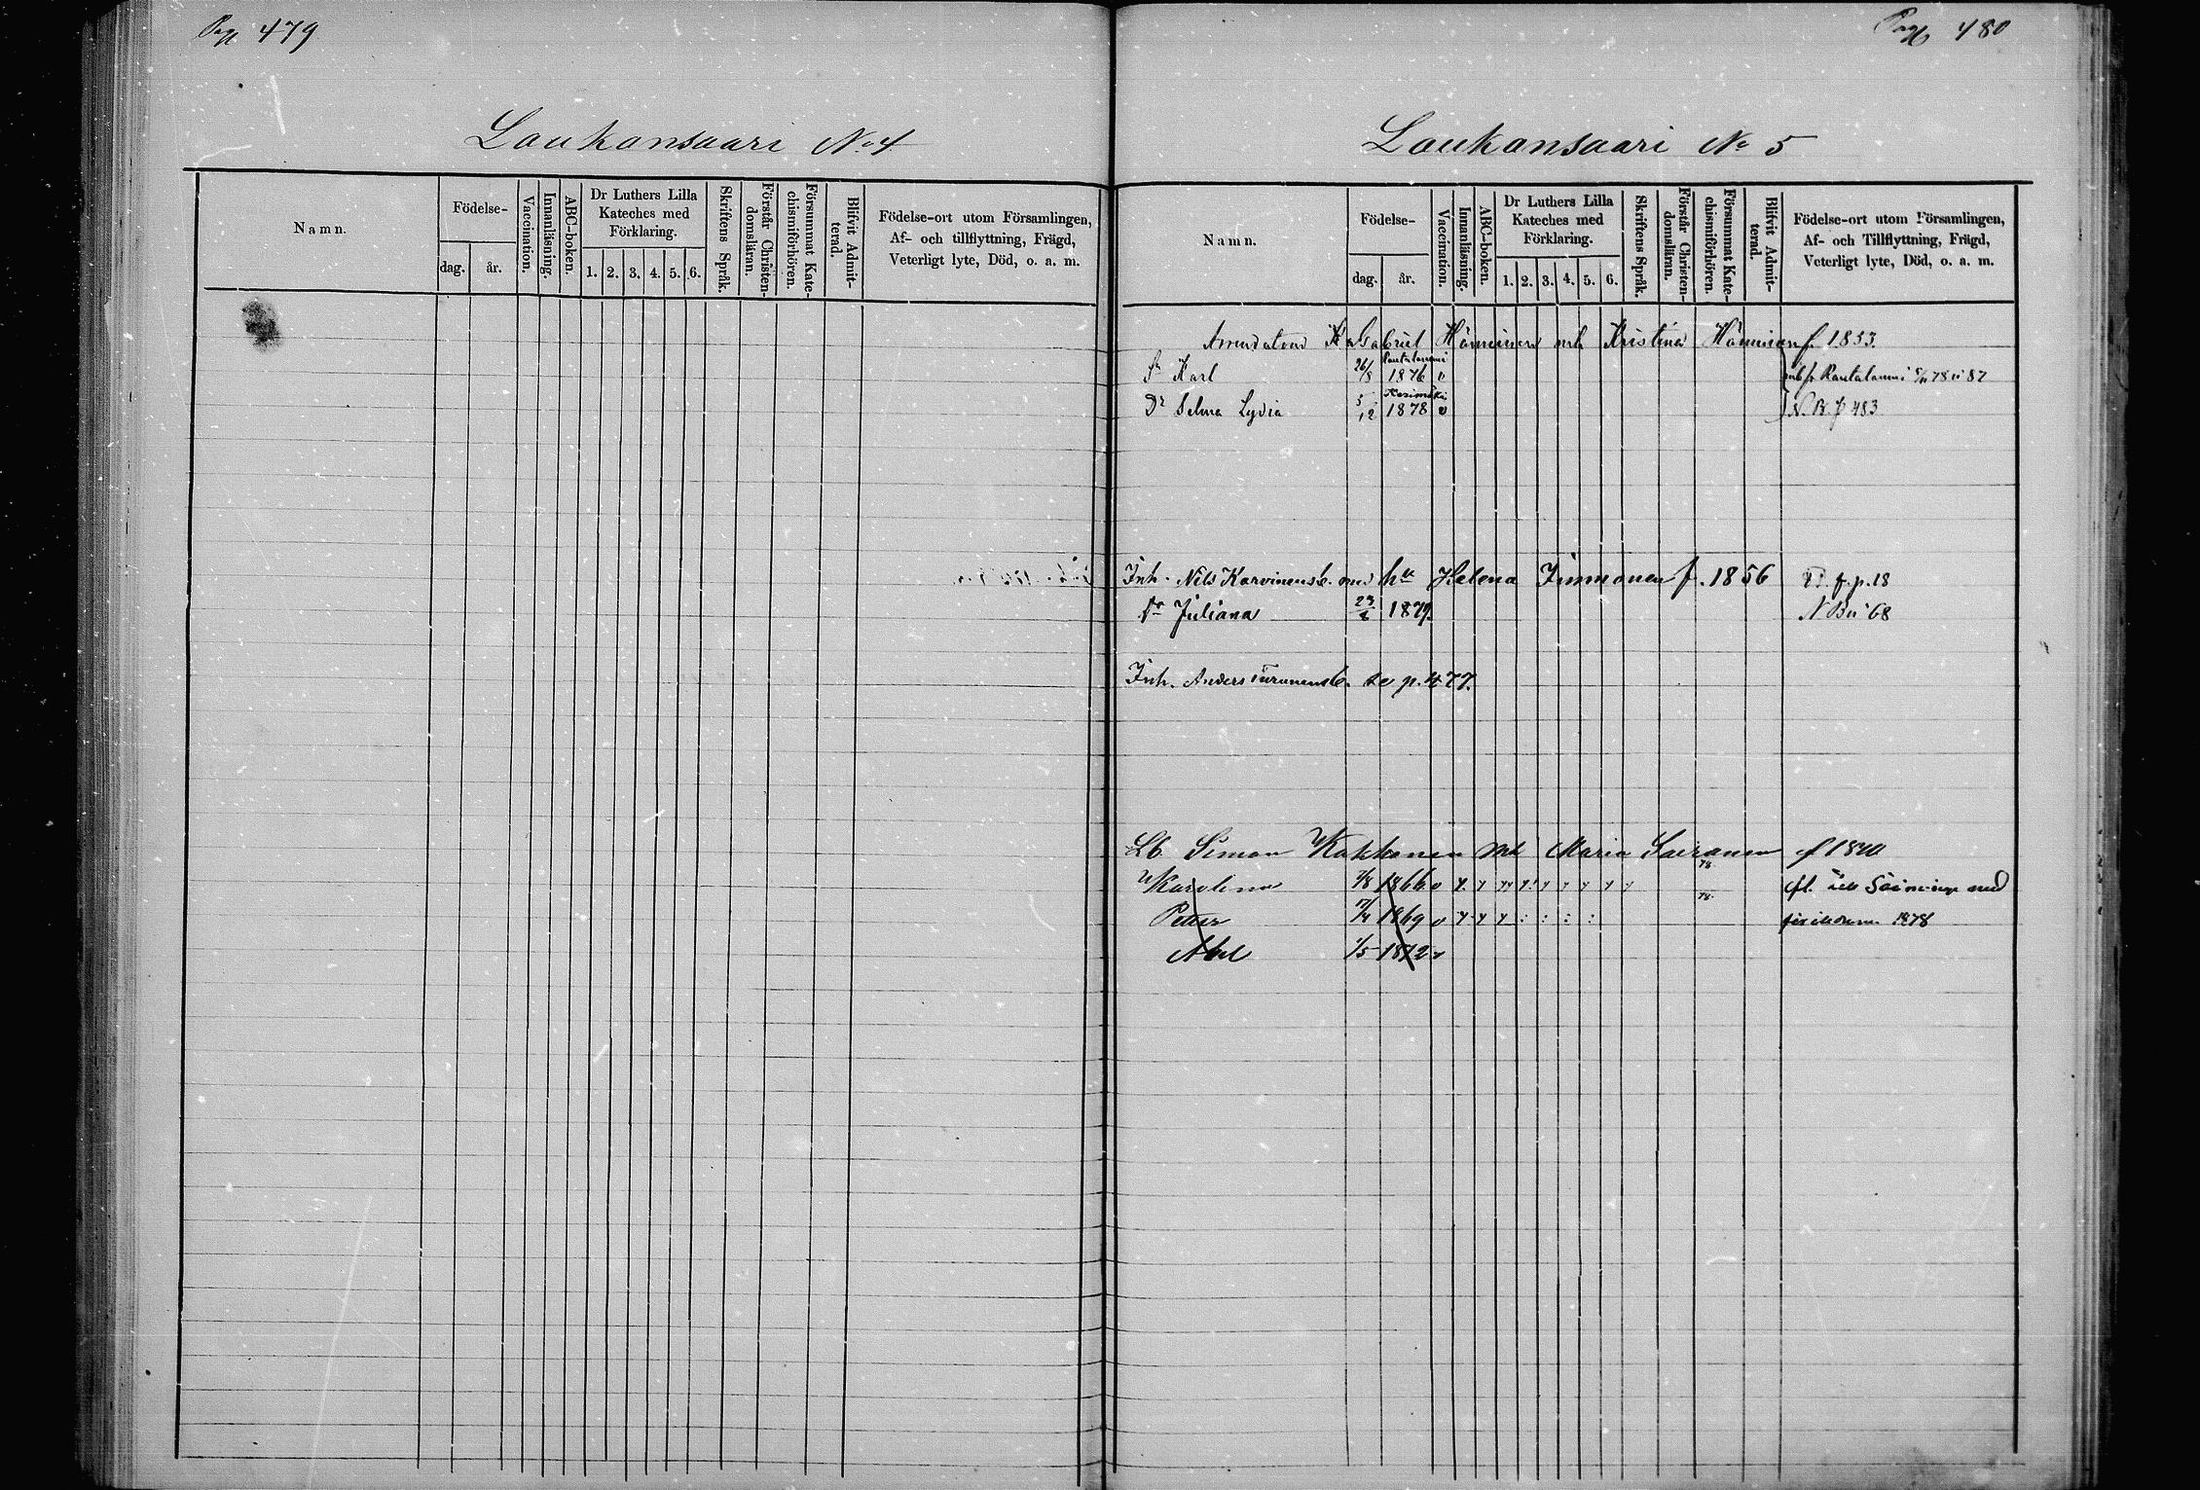 Pag 479
Laukansaari No 4
Namn.
Födelse-
dag.
år.
Vaccination.
Innanläsning.
ABC-boken.
Dr Luthers Lilla
Kateches med
Förklaring.
1. 2. 3. 4. 5. 6.
Skriftens Språk.
Förstår Christen-
domsläran.
Försummat Kate-
chismiförhören.
Blifvit Admit-
terad.
Födelse-ort utom Församlingen,
Af- och tillflyttning, Frägd,
Veterligt lyte, Död, o. a. m.
Pag 480
Laukansaari No 5
Namn.
Födelse-
dag.
år.
Vaccination.
Innanläsning.
ABC-boken.
Dr Luthers Lilla
Kateches med
Förklaring.
1. 2. 3. 4. 5. 6.
Skriftens Språk.
Förstår Christen-
domsläran.
Försummat Kate-
chismiförhören.
Blifvit Admit-
terad.
Födelse-ort utom Församlingen,
Af- och Tillflyttning, Frägd,
Veterligt lyte, Död, o. a. m.
Gabriel Hänninens Kristina Hänninen f. 1853.
Karl 26/8 1876 Rautalampi
Dr Selma Lydia 5/12 1878 N. B. p 483
Inh. Nils Karvinens hu Helena Immonen f. 1856 f. p. 18
Dr Juliana 23/2 1879.
Inh. Anders Turunens se p. 477.
Lb Simon Maria f 1840
Karolina 1866
Petter 1869 1878
Abel 1/5 1872